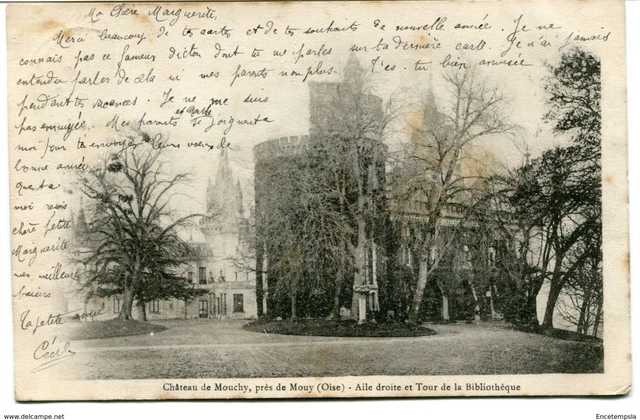 Ma Chère Marguerite,
Merci beaucoup de tes cartes et de tes souhaits de nouvelle année. Je ne
connais pas ce fameux dicton dont tu me parles sur ta dernière carte. Je n'ai jamais
entendu parler de cela ni mes parents non plus. T'es-tu bien amusée
pendant tes vacances. Je ne me suis
pas ennuyée. Mes parents et
se joignent à
moi pour t'envoyer leurs vœux de
bonne année
Quant à
moi reçois
chère petite
Marguerite
mes meilleurs
baisers
Ta petite amie
Cécile
Château de Mouchy, près de Mouy (Oise) - Aile droite et Tour de la Bibliothèque
© Encetempsia
www.delcampe.net